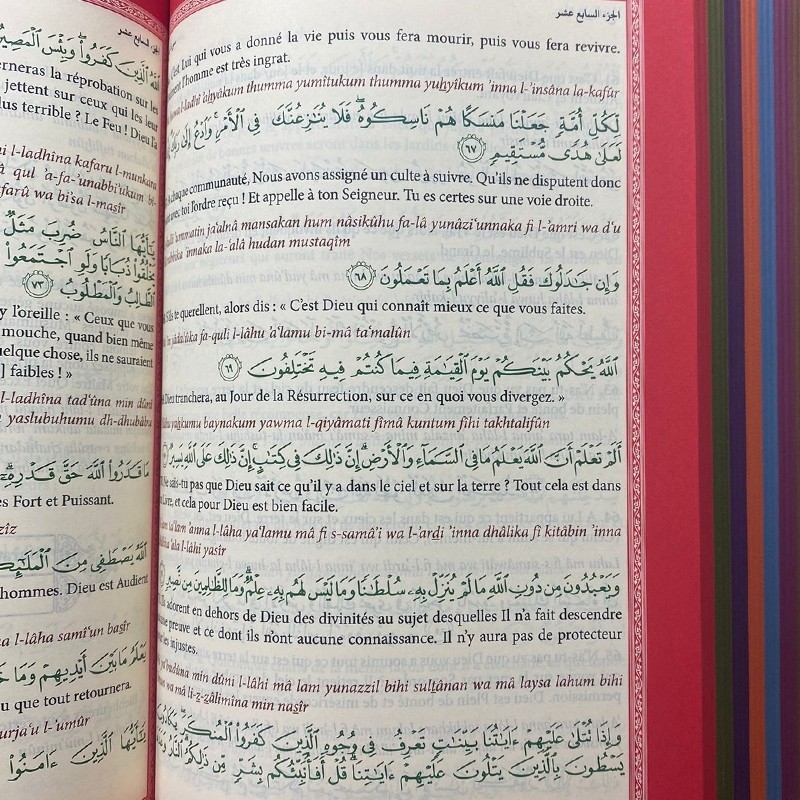 الجزء السابع عشر
C'est Lui qui vous a donné la vie puis vous fera mourir, puis vous fera revivre.
l'homme est très ingrat.
l-ladhî 'ahyâkum thumma yumîtukum thumma yuhyikum 'inna l-'insâna la-kafûr
لِكُلِّ أُمَّةٍ جَعَلْنَا مَنسَكًا هُمْ نَاسِكُوهُ ۖ فَلَا يُنَٰزِعُنَّكَ فِي الْأَمْرِ ۚ وَادْعُ إِلَىٰ رَبِّكَ
لَعَلَىٰ هُدًى مُّسْتَقِيمٍ ٦٧
chaque communauté, Nous avons assigné un culte à suivre. Qu'ils ne disputent donc
avec toi l'ordre reçu ! Et appelle à ton Seigneur. Tu es certes sur une voie droite.
'ummatin ja'alnâ mansakan hum nâsikûhu fa-lâ yunâzi'unnaka fi l-'amri wa d'u
'innaka la-'alâ hudan mustaqîm
وَإِن جَٰدَلُوكَ فَقُلِ اللَّهُ أَعْلَمُ بِمَا تَعْمَلُونَ ٦٨
S'ils te querellent, alors dis : « C'est Dieu qui connaît mieux ce que vous faites.
jâdalûka fa-quli l-lâhu a'lamu bi-mâ ta'malûn
اللَّهُ يَحْكُمُ بَيْنَكُمْ يَوْمَ الْقِيَٰمَةِ فِيمَا كُنتُمْ فِيهِ تَخْتَلِفُونَ ٦٩
Dieu tranchera, au Jour de la Résurrection, sur ce en quoi vous divergez. »
yahkumu baynakum yawma l-qiyâmati fîmâ kuntum fîhi takhtalifûn
أَلَمْ تَعْلَمْ أَنَّ اللَّهَ يَعْلَمُ مَا فِي السَّمَآءِ وَالْأَرْضِ ۗ إِنَّ ذَٰلِكَ فِي كِتَٰبٍ ۚ إِنَّ ذَٰلِكَ عَلَى اللَّهِ يَسِيرٌ
Ne sais-tu pas que Dieu sait ce qu'il y a dans le ciel et sur la terre ? Tout cela est dans
Livre, et cela pour Dieu est bien facile.
ta'lam 'anna l-lâha ya'lamu mâ fi s-samâ'i wa l-'ardi 'inna dhâlika fî kitâbin 'inna
'ala l-lâhi yasîr
وَيَعْبُدُونَ مِن دُونِ اللَّهِ مَا لَمْ يُنَزِّلْ بِهِ سُلْطَٰنًا وَمَا لَيْسَ لَهُم بِهِ عِلْمٌ ۗ وَمَا لِلظَّٰلِمِينَ مِن نَّصِيرٍ
Ils adorent en dehors de Dieu des divinités au sujet desquelles Il n'a fait descendre
preuve et ce dont ils n'ont aucune connaissance. Il n'y aura pas de protecteur
les injustes.
ya'budûna min dûni l-lâhi mâ lam yunazzil bihi sultânan wa mâ laysa lahum bihi
wa mâ li-z-zâlimîna min nasîr
وَإِذَا تُتْلَىٰ عَلَيْهِمْ ءَايَٰتُنَا بَيِّنَٰتٍ تَعْرِفُ فِي وُجُوهِ الَّذِينَ كَفَرُوا الْمُنكَرَ ۖ يَكَادُونَ
يَسْطُونَ بِالَّذِينَ يَتْلُونَ عَلَيْهِمْ ءَايَٰتِنَا ۗ قُلْ أَفَأُنَبِّئُكُم بِشَرٍّ مِّن ذَٰلِكُمُ ۗ النَّارُ
الجزء السابع عشر
اللَّهُ الَّذِينَ كَفَرُوا ۖ وَبِئْسَ الْمَصِيرُ
la réprobation sur les
jettent sur ceux qui les leur
plus terrible ? Le Feu ! Dieu l'a
l-ladhîna kafaru l-munkara
qul 'a-fa-'unabbi'ukum bi-
kafarû wa bi'sa l-masîr
يَٰٓأَيُّهَا النَّاسُ ضُرِبَ مَثَلٌ
يَخْلُقُوا ذُبَابًا وَلَوِ اجْتَمَعُوا
الطَّالِبُ وَالْمَطْلُوبُ ٧٣
l'oreille : « Ceux que vous
mouche, quand bien même
quelque chose, ils ne sauraient
] faibles ! »
l-ladhîna tad'ûna min dûni
yaslubuhumu dh-dhubâbu
مَا قَدَرُوا اللَّهَ حَقَّ قَدْرِهِ
es Fort et Puissant.
zîz
اللَّهُ يَصْطَفِي مِنَ الْمَلَٰٓئِكَةِ
hommes. Dieu est Audient
l-lâha samî'un basîr
يَعْلَمُ مَا بَيْنَ أَيْدِيهِمْ وَمَا
que tout retournera.
turja'u l-'umûr
يَٰٓأَيُّهَا الَّذِينَ ءَامَنُوا